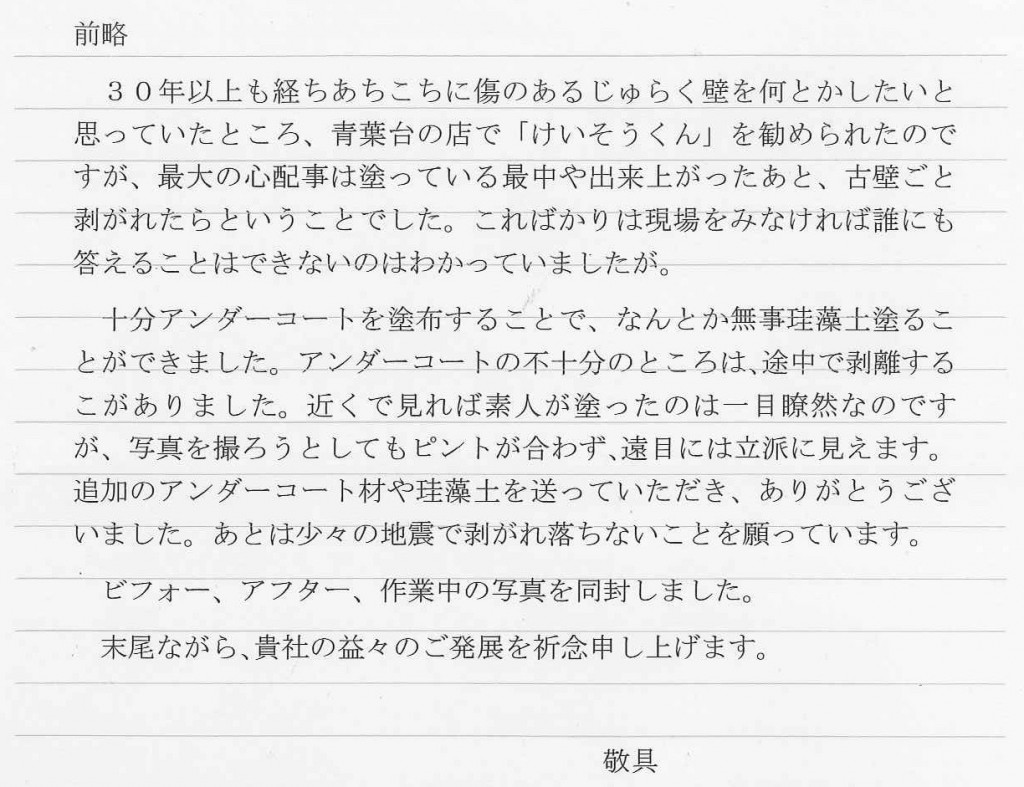 前略
３０年以上も経ちあちこちに傷のあるじゅらく壁を何とかしたいと
思っていたところ、青葉台の店で「けいそうくん」を勧められたので
すが、最大の心配事は塗っている最中や出来上がったあと、古壁ごと
剥がれたらということでした。こればかりは現場をみなければ誰にも
答えることはできないのはわかっていましたが。
十分アンダーコートを塗布することで、なんとか無事珪藻土塗るこ
とができました。アンダーコートの不十分のところは､途中で剥離する
こがありました。近くで見れば素人が塗ったのは一目瞭然なのです
が、写真を撮ろうとしてもピントが合わず､遠目には立派に見えます。
追加のアンダーコート材や珪藻土を送っていただき、ありがとうござ
いました。あとは少々の地震で剥がれ落ちないことを願っています。
ビフォー、アフター、作業中の写真を同封しました。
末尾ながら､貴社の益々のご発展を祈念申し上げます。
敬具